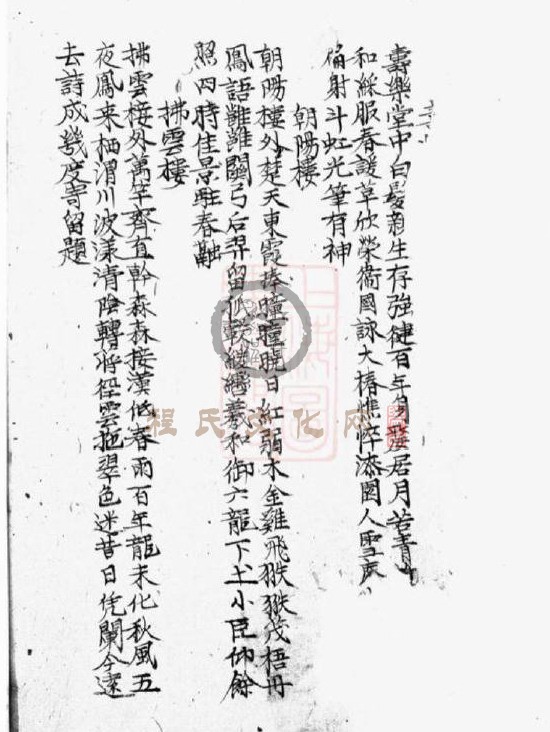 壽樂堂中白髮親生存強健百年居月青
和綵服春護草欣榮衛國詠大椿憔悴漆園人雪
射斗虹光筆有神
朝陽樓
朝陽樓外楚天東霞捧曈曈曉日紅弱木金雞飛茂梧丹
鳳語雝雝關弓后羿留羲和御六龍下土小臣仰餘
照四時佳景駐春融
拂雲樓
拂雲樓外萬竿齊直幹森森接漢低春雨百年龍未化秋風五
夜鳳来栖渭川波漾清陰轉雲拖翠色迷昔日凭闌今遠
去詩成幾度寄留題
程氏文化网